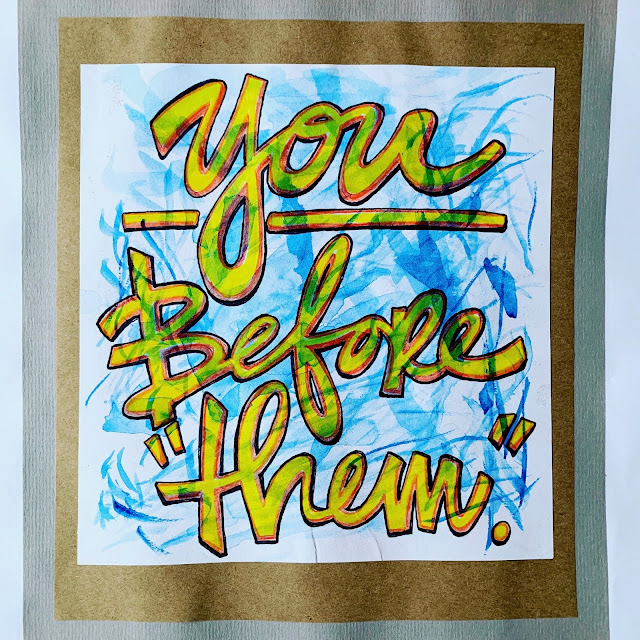 you
Before
"them."